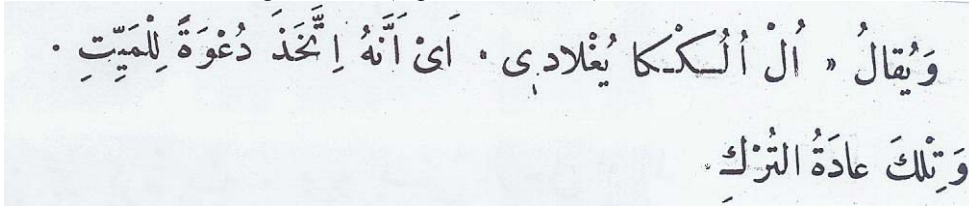 وَيُقالُ « اُلْ اُلُكْكا يُغْلادٖى ٠ اَىْ اَنَّهُ اِتَّخَذَ دُعْوَةً لِلْمَيِّتِ ٠
وَتِلْكَ عادَةُ التُرْكِ ٠